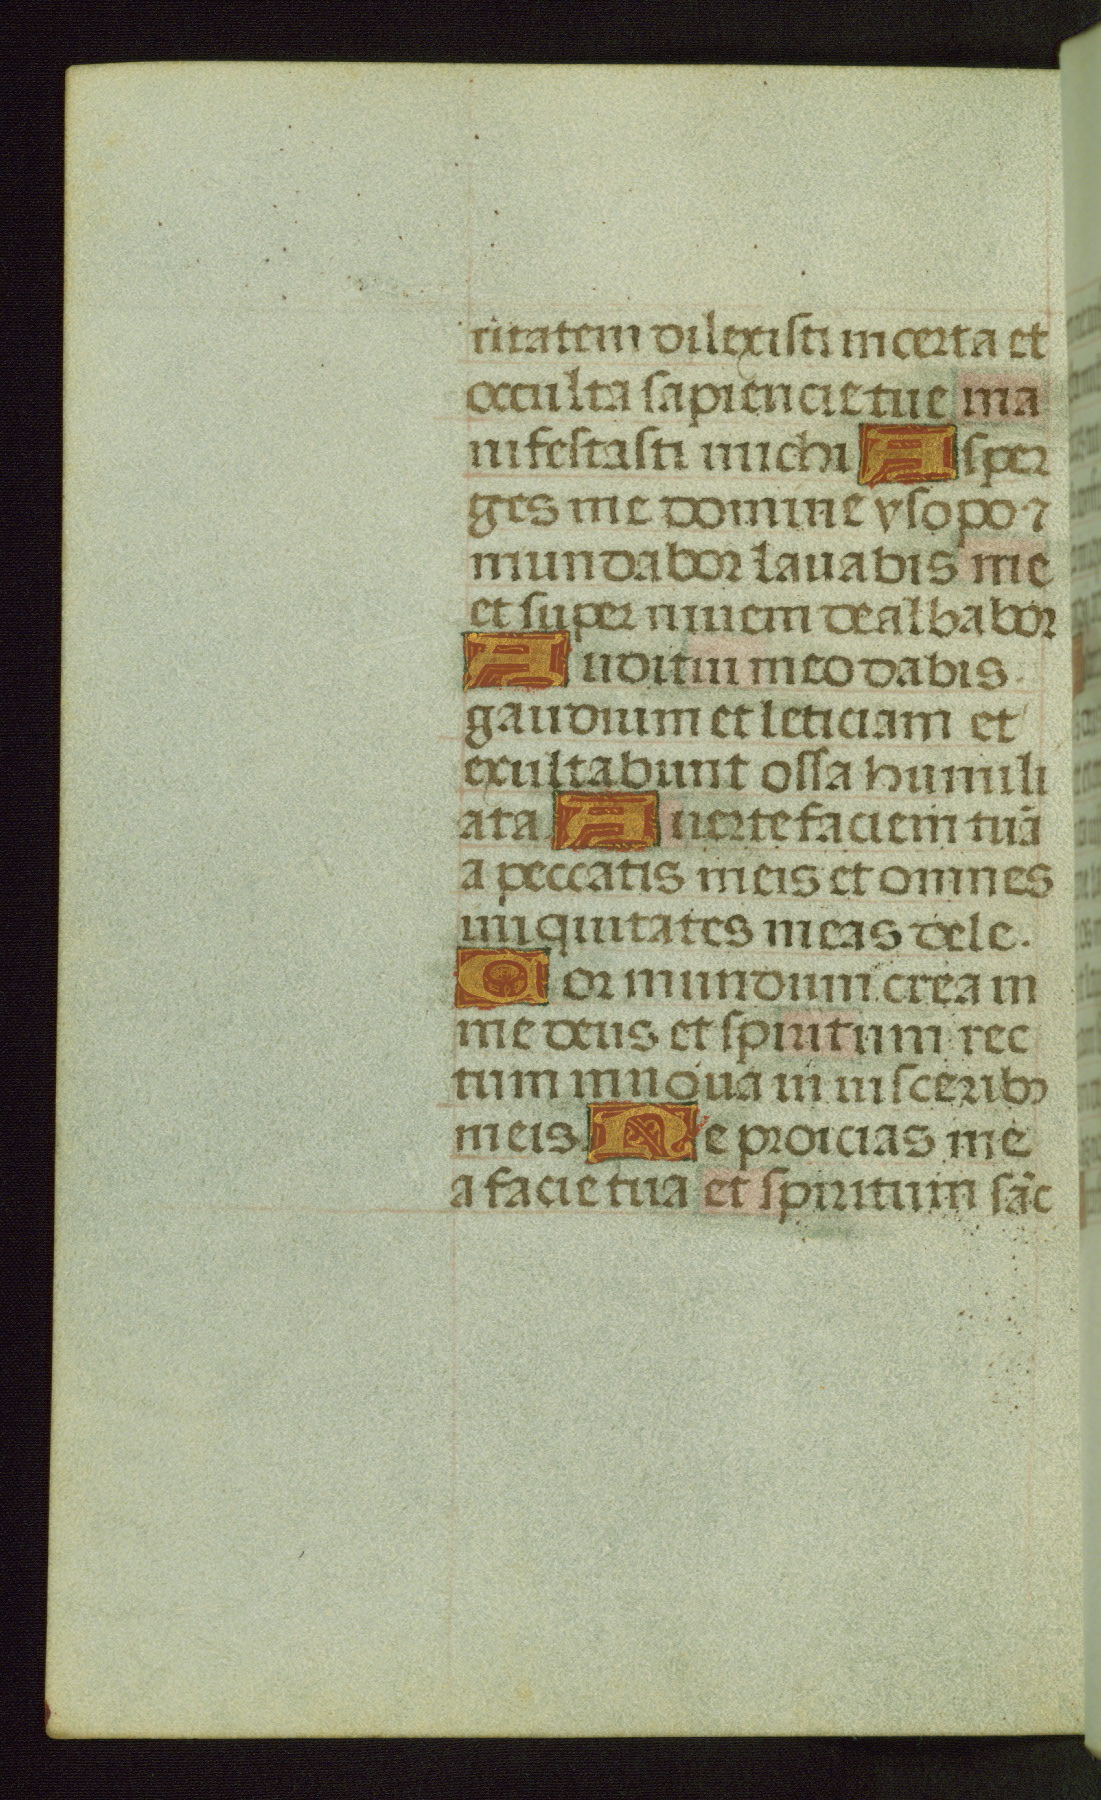 ritatem dilexisti incerta et
occulta sapiencie tue ma
nifestasti michi Asper
ges me domine ysopo ⁊
mundabor lauabis me
et super niuem dealbabor
Auditui meo dabis
gaudium et leticiam et
exultabunt ossa humili
ata Auerte faciem tuā
a peccatis meis et omnes
iniquitates meas dele.
Cor mundum crea in
me deus et spiritum rec
tum innoua in uisceribꝫ
meis. Ne proicias me
a facie tua et spiritum sāc